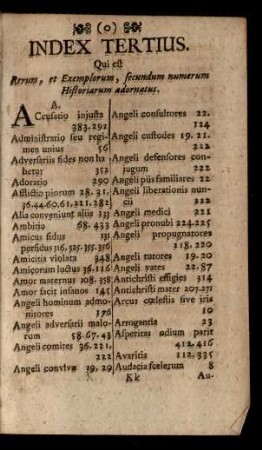 (o)
INDEX TERTIUS.
Qui est
Rerum, et Exemplorum, secundum numerum
Historiarum adornatus.
A.
ACcusatio injusta
383.292
Administratio seu regi-
men unius 56
Adversariis fides non ha
betur 352
Adoratio 290
Afflictio piorum 28. 31.
36.44.60.61,221.282
Alia conveniunt aliis 133
Ambitio 68. 433
Amicus fidus 131
perfidus 116,325.355.356
Amicitia violata 348
Amicorum luctus 36.116
Amor maternus 108. 358
Amor facit insanos 145
Angeli hominum admo-
nitores 176
Angeli adversarii malo-
rum 58.67.43
Angeli comites 36.221,
222
Angeli convivæ 19. 29
Angeli consultores 22.
124
Angeli custodes 19. 21.
222
Angeli defensores con-
jugum 222
Angeli piis familiares 22
Angeli liberationis nun-
cii 222
Angeli medici 221
Angeli pronubi 224.225
Angeli propugnatores
218, 220
Angeli tutores 19.20
Angeli vates 22.87
Antichristi effigies 314
Antichristi mater 207.271
Arcus cœlestis sive iris
10
Arrogantia 23
Asperitas odium parit
412,416
Avaritia 112,335
Audacia scelerum 8
Kk Au-